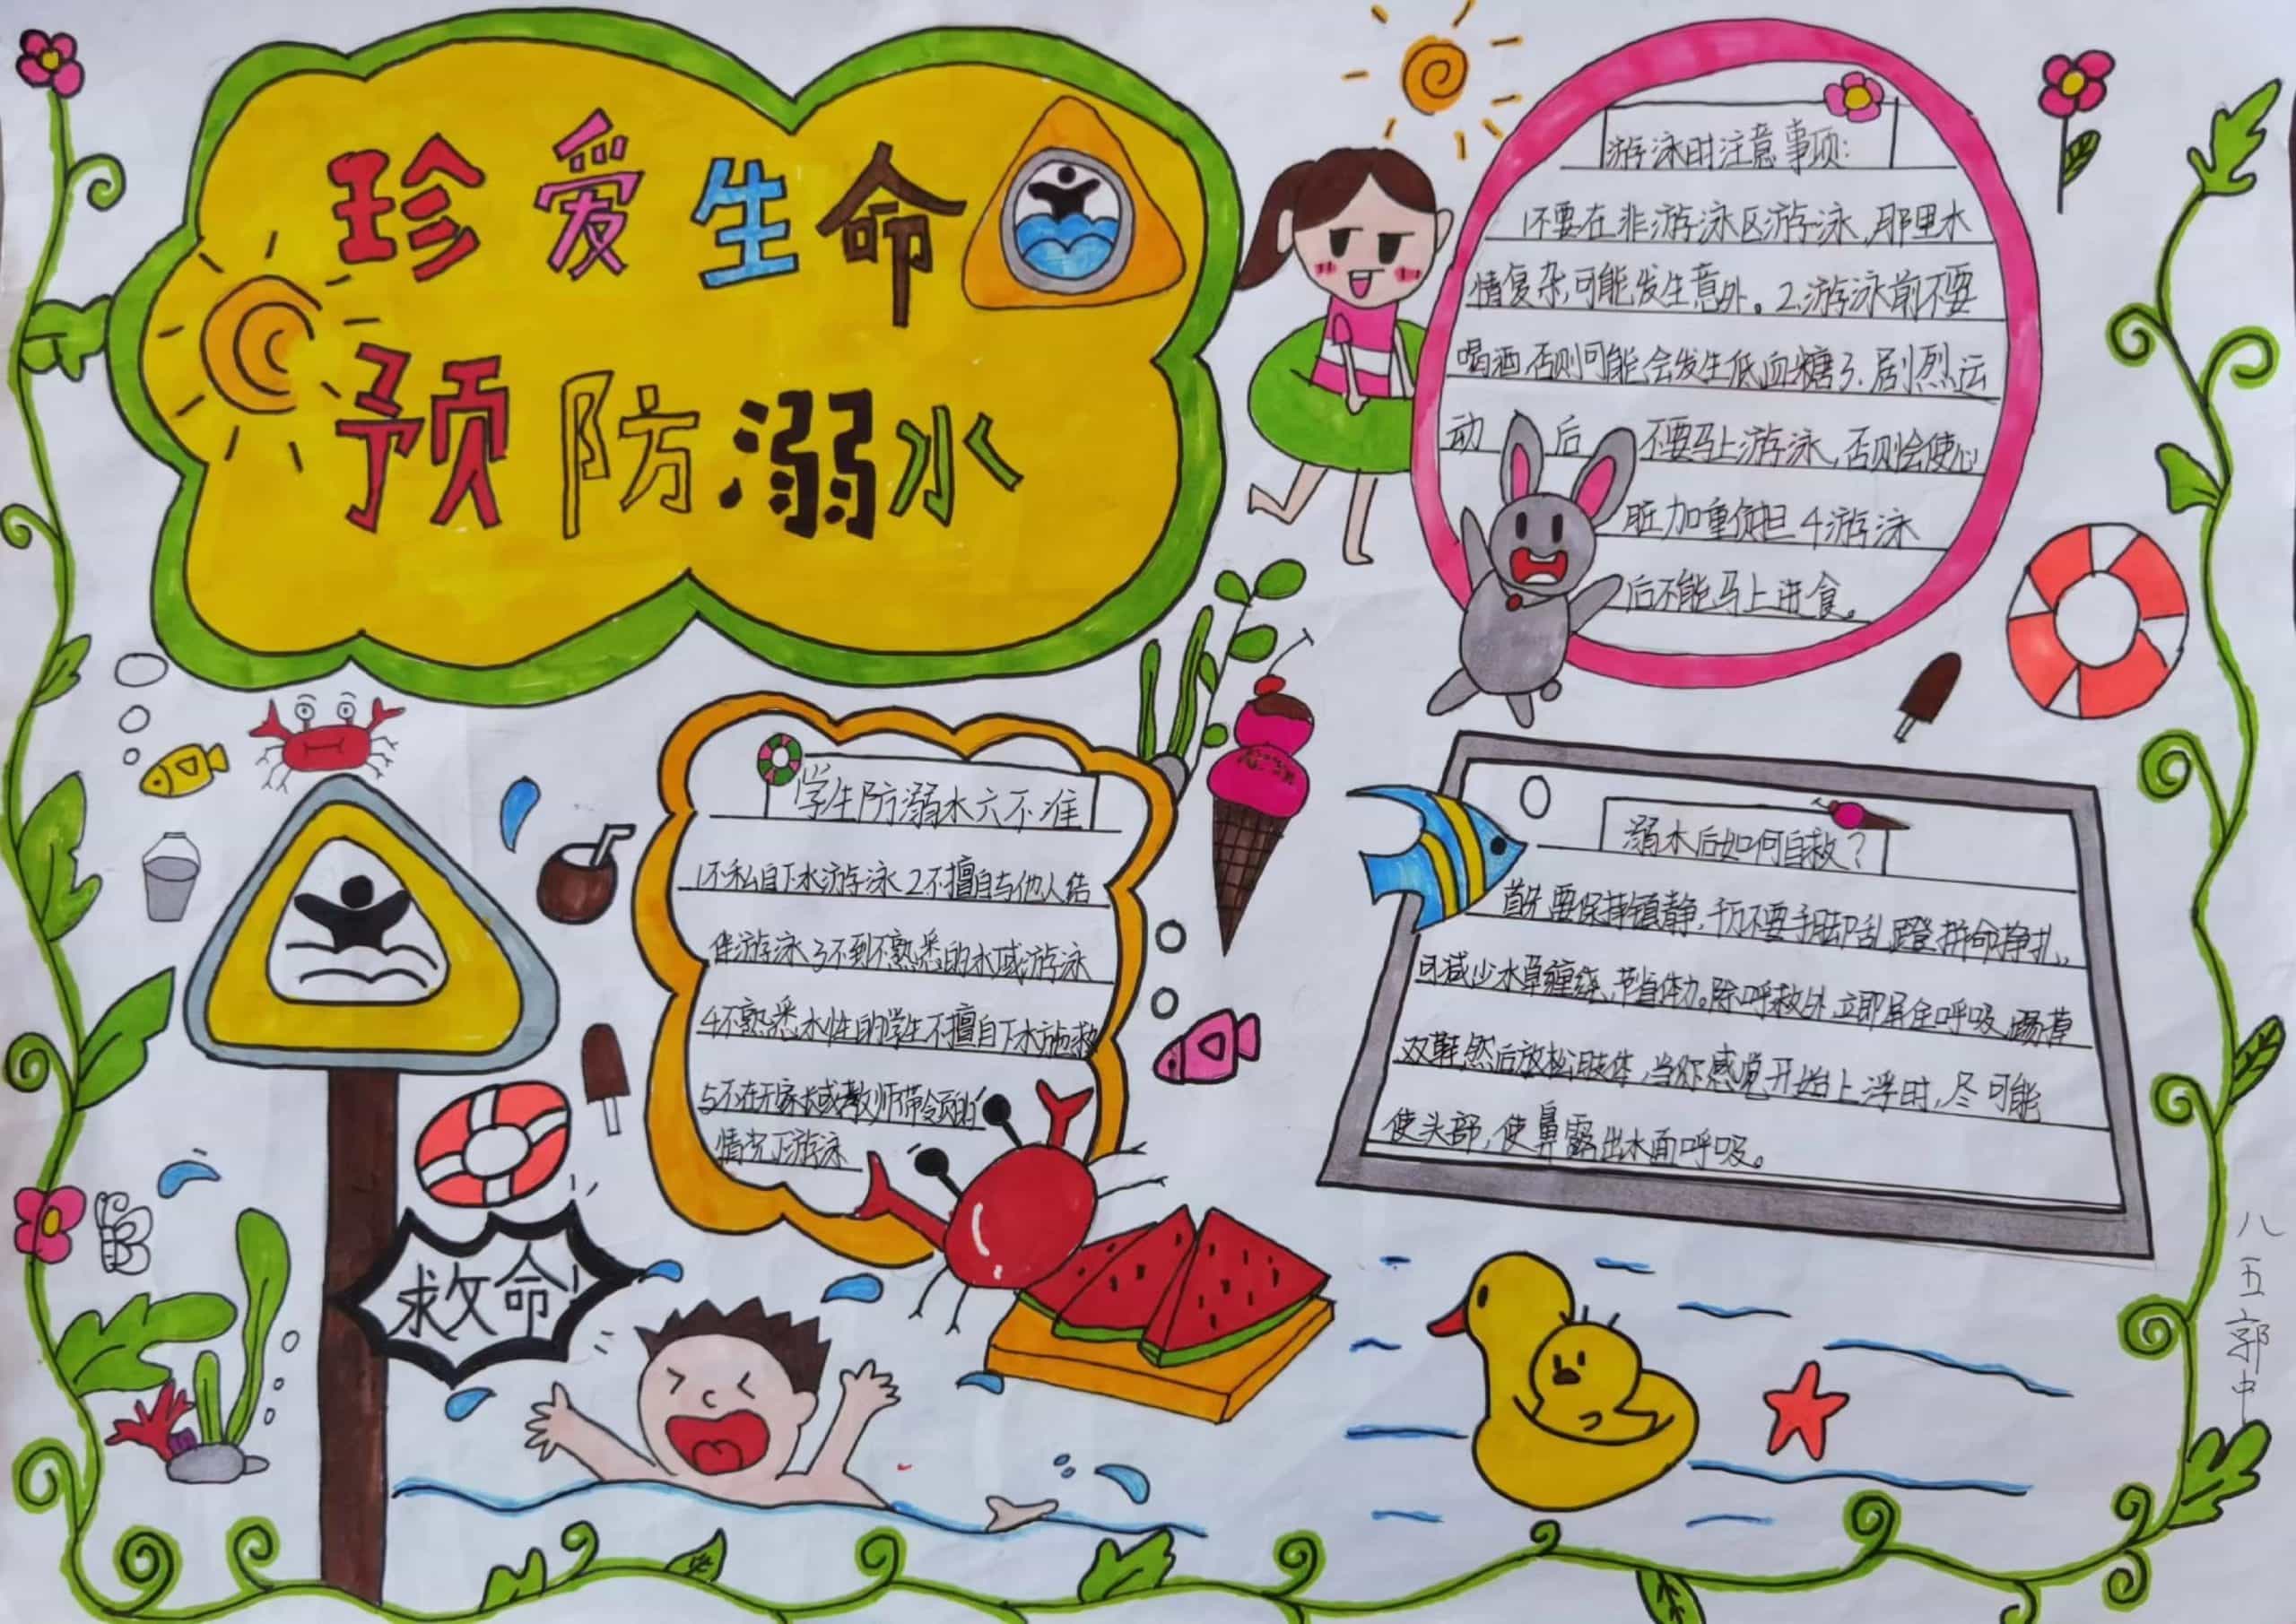 珍爱生命
预防溺水
游泳时注意事项:
1不要在非游泳区游泳,那里水
情复杂,可能发生意外。2.游泳前不要
喝酒,否则可能会发生低血糖3.剧烈运
动后不要马上游泳,否则会使心
脏加重负担4游泳
后不能马上进食。
学生防溺水六不准
1不私自下水游泳2不擅自与他人结
伴游泳3不到不熟悉的水域游泳
4不熟悉水性的学生不擅自下水施救
5不在无家长或教师带领的
情况下游泳
溺水后如何自救?
首先要保持镇静,千万不要手脚乱蹬拼命挣扎,
可减少水草缠绕,节省体力。除呼救外,立即屏住呼吸,踢掉
双鞋,然后放松肢体,当你感觉开始上浮时,尽可能
使头部,使鼻露出水面呼吸。
救命!
八五郭中